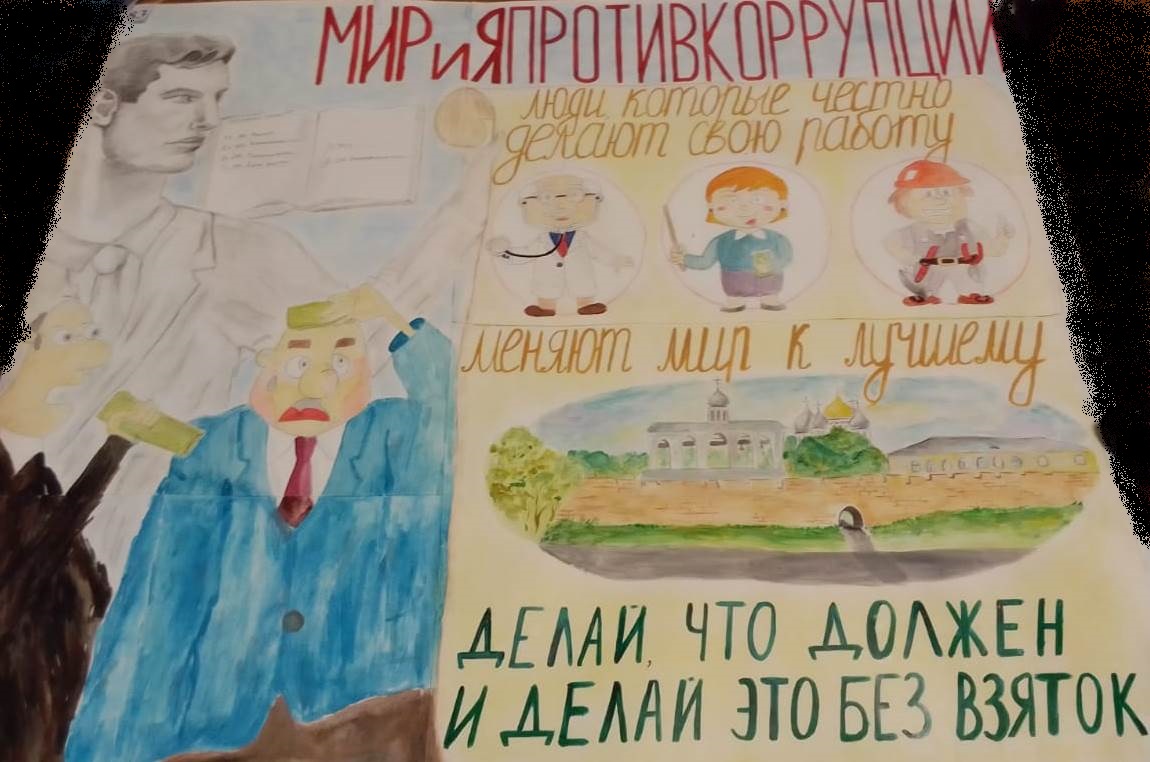 МИРиЯПРОТИВКОРРУПЦИИ
люди которые честно
делают свою работу
меняют мир к лучшему
ДЕЛАЙ, ЧТО ДОЛЖЕН
И ДЕЛАЙ ЭТО БЕЗ ВЗЯТОК